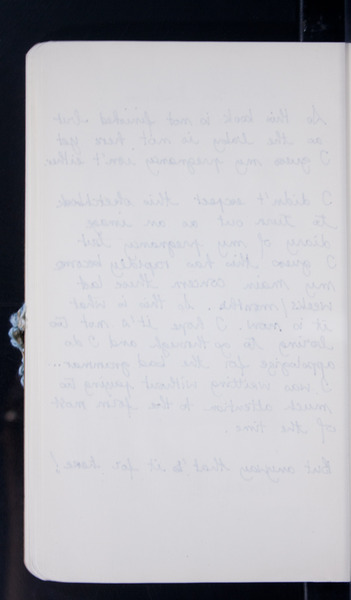 So this book is not finished but
as the baby is not here yet
I guess my pregnancy isn't either.
I didn't expect this sketchbook
to turn out as an insane
diary of my pregnancy but
I guess this has rapidly become
my main concern these last
weeks/months. So this is what
it is now. I hope it's not too
boring to go through and I do
apologize for the bad grammar...
I was writting without paying too
much attention to the form most
of the time.
But anyway that's it for here!